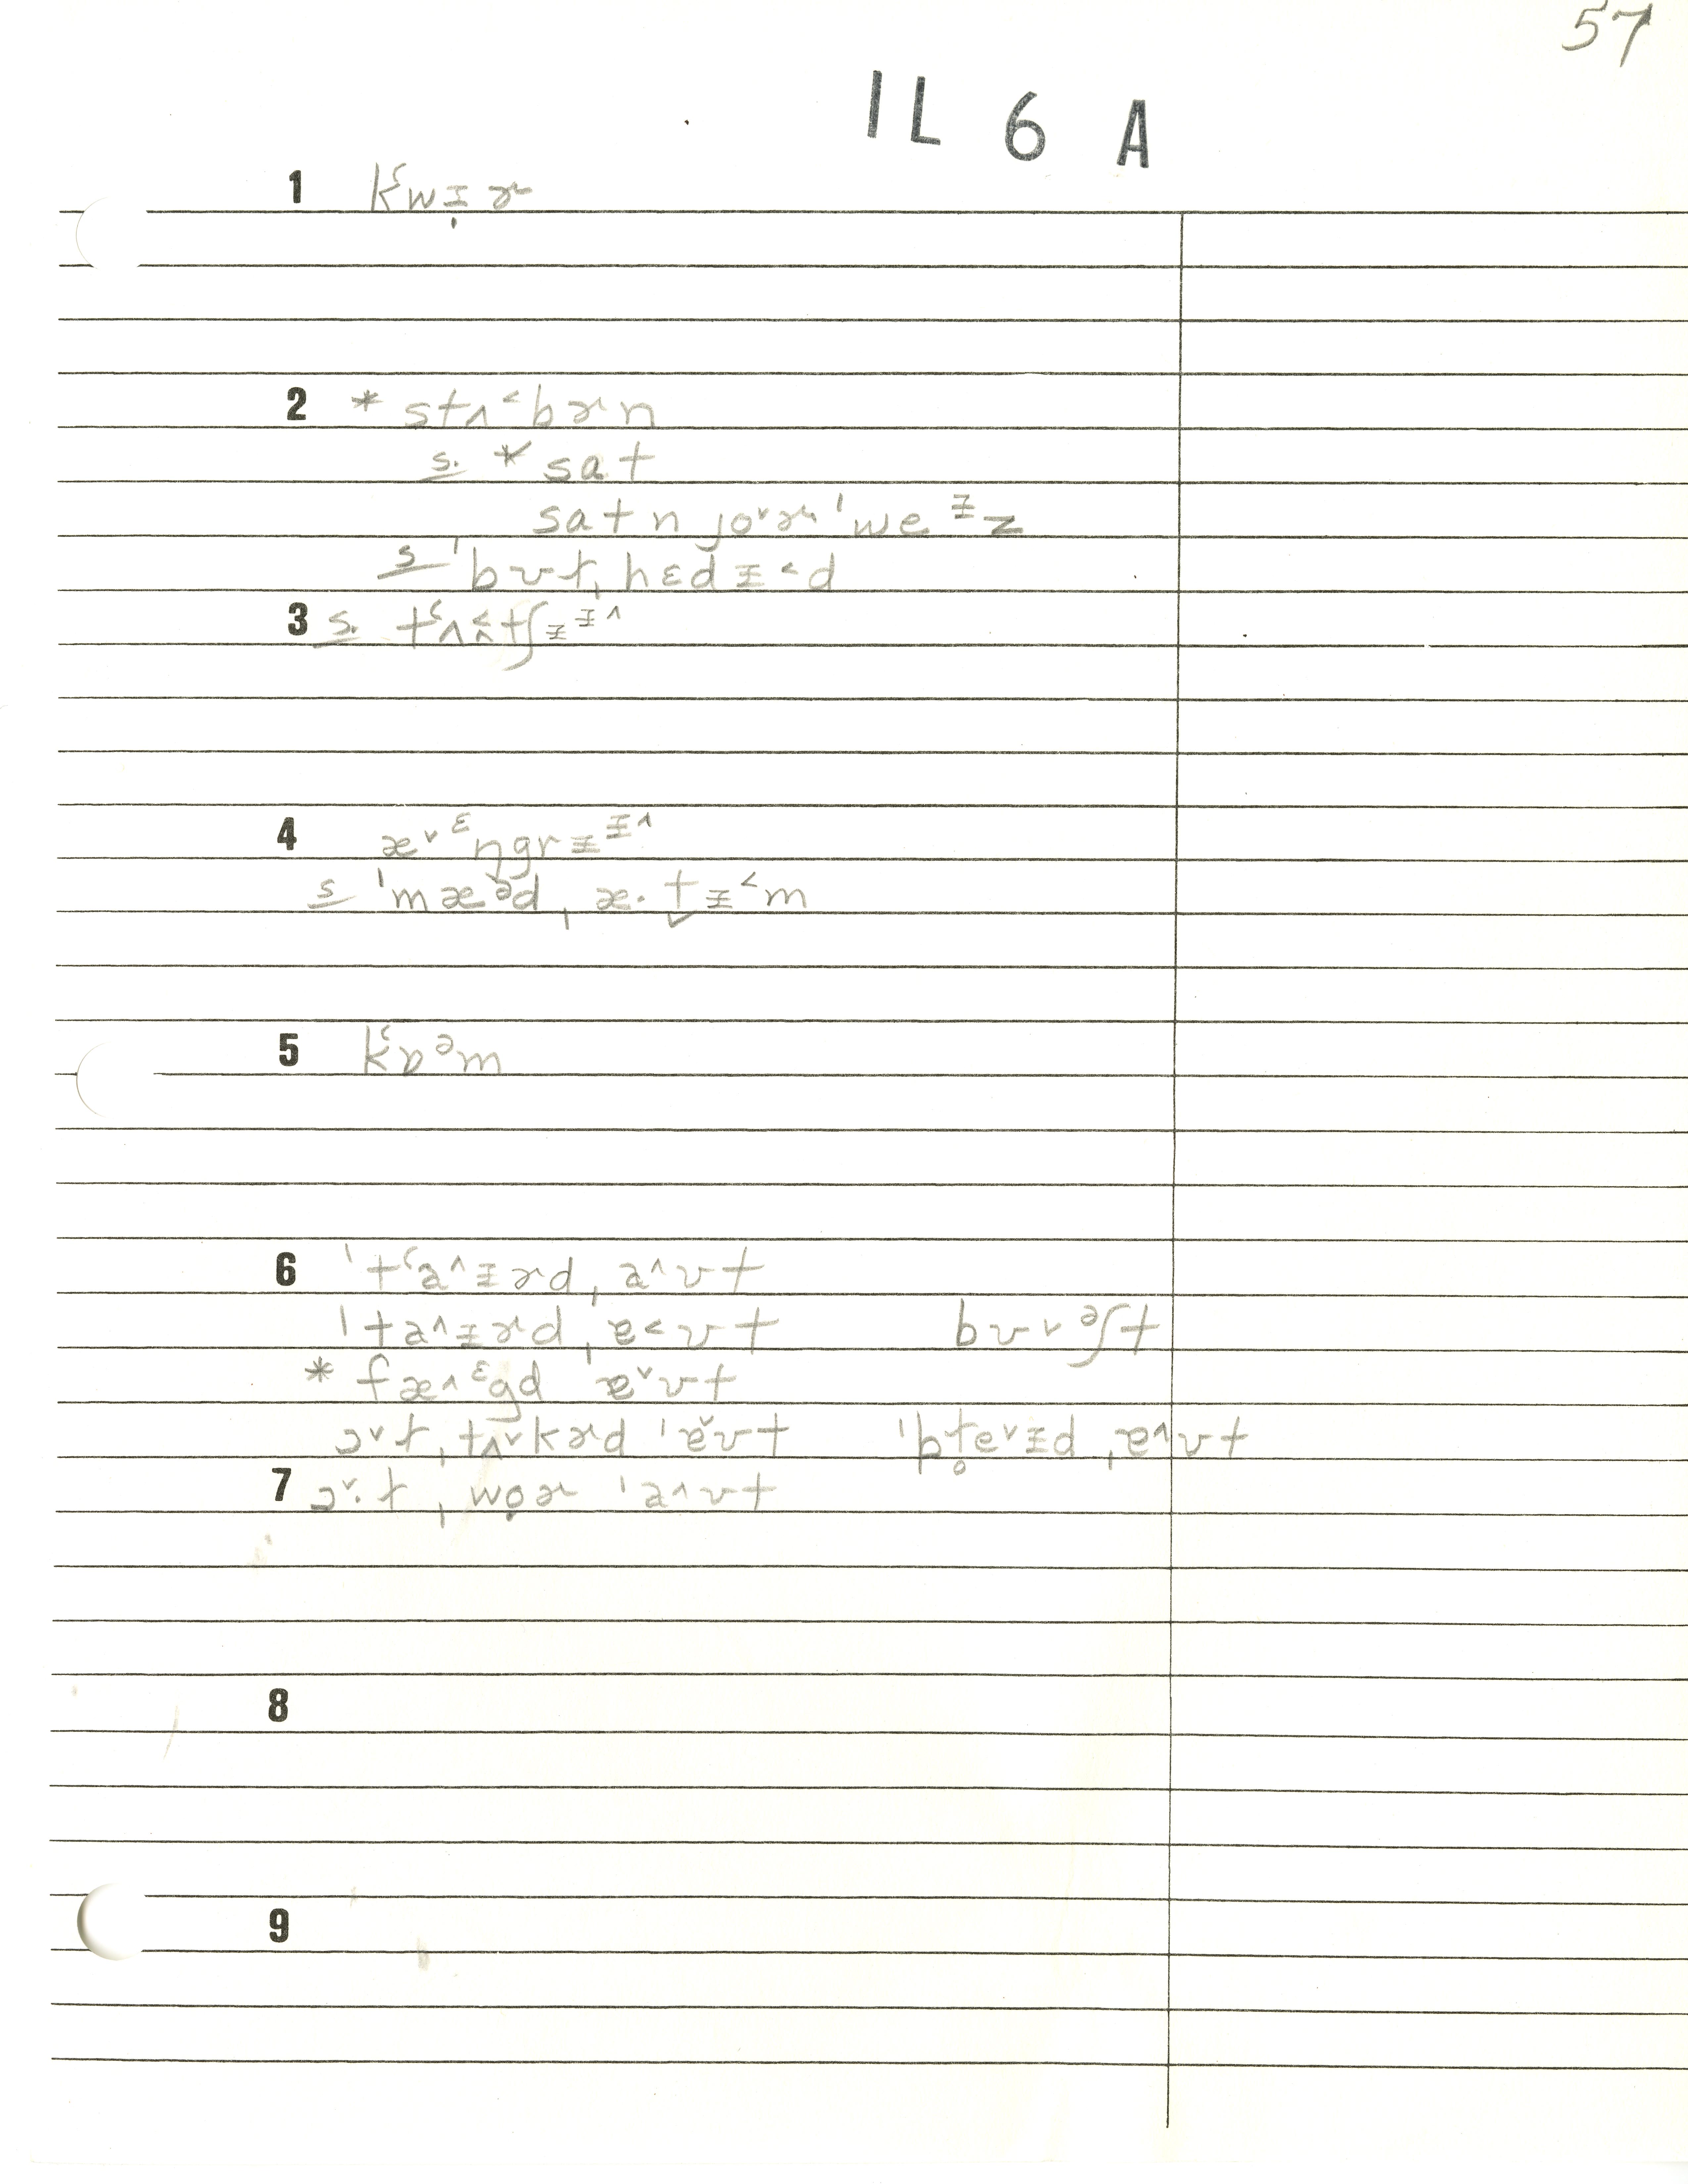 57
IL 6 A
1 kʿwɪ̣ɚ
2 * stʌ˂bɚn
s. * sat
satn joᵛɚ ˈweᶦz
s ˈbʊt ˌhɛdɪ˂d
3 s. tʿʌ˂tʃɪᶦ^
4 æᵛᵋŋgrɪᶦ^
s ˈmæᵊd ˌæ·t̬ɪ˂m
5 kʿɒᵊm
6 ˈtʿa^ɪɚd ˌa^ʊt
ˈta^ɪɚd ˌɐ˃ʊt bʊᵛᵊʃt
* fæ^ᵋgd ˈɐᵛʊt
ɔᵛt ˌtʌᵛkɚd ˈɐᵛʊt ˈpl̥eᵛɪd ˌɐ^ʊt
7 ɔᵛ·t ˌwọɚ ˈa^ʊt
8
9